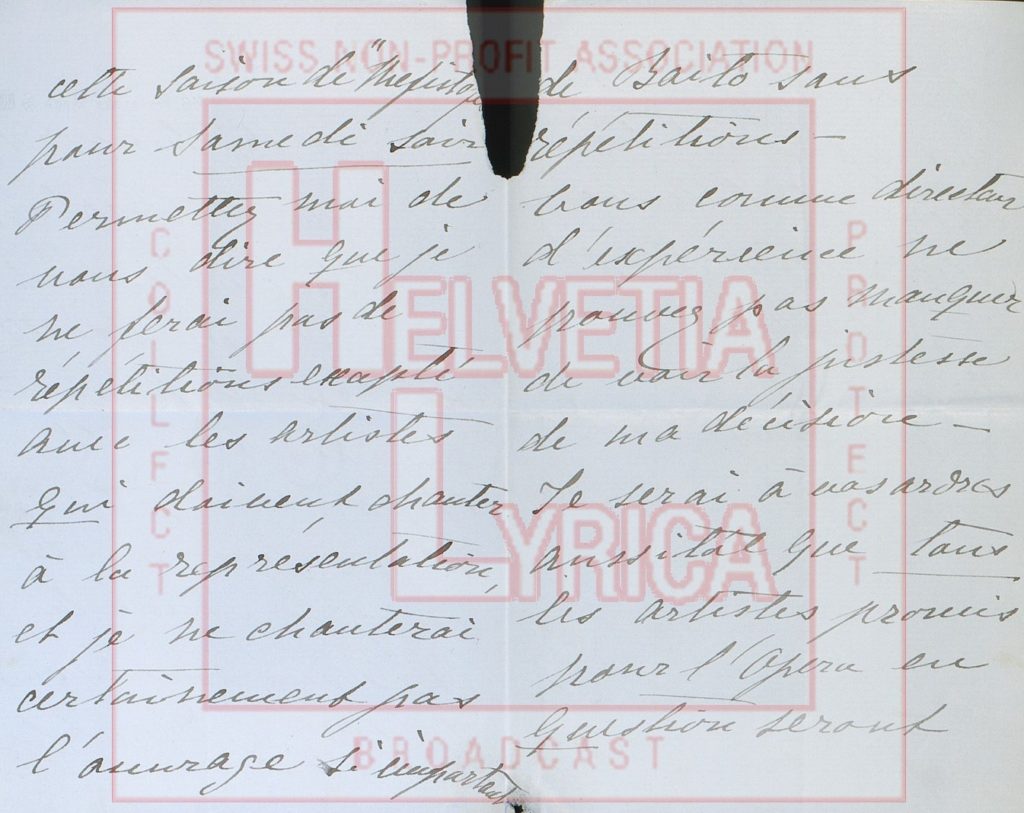 cette saison de "Mefistofe
pour samedi soir
Permettez moi de
vous dire que je
ne ferai pas de
répétitions exapté
avec les artistes
qui doivent chanter
à la représentation,
et je ne chanterai
certainement pas
l'ouvrage si important
de Baito sans
répétitions —
Vous comme directeur
d'expérience ne
pouvez pas manquer
de voir la justesse
de ma décision —
Je serai à vos ordres
aussitôt que tous
les artistes promis
pour l'Opera en
question seront
SWISS NON-PROFIT ASSOCIATION
COLLECT
HELVETIA
LYRICA
PROTECT
BROADCAST